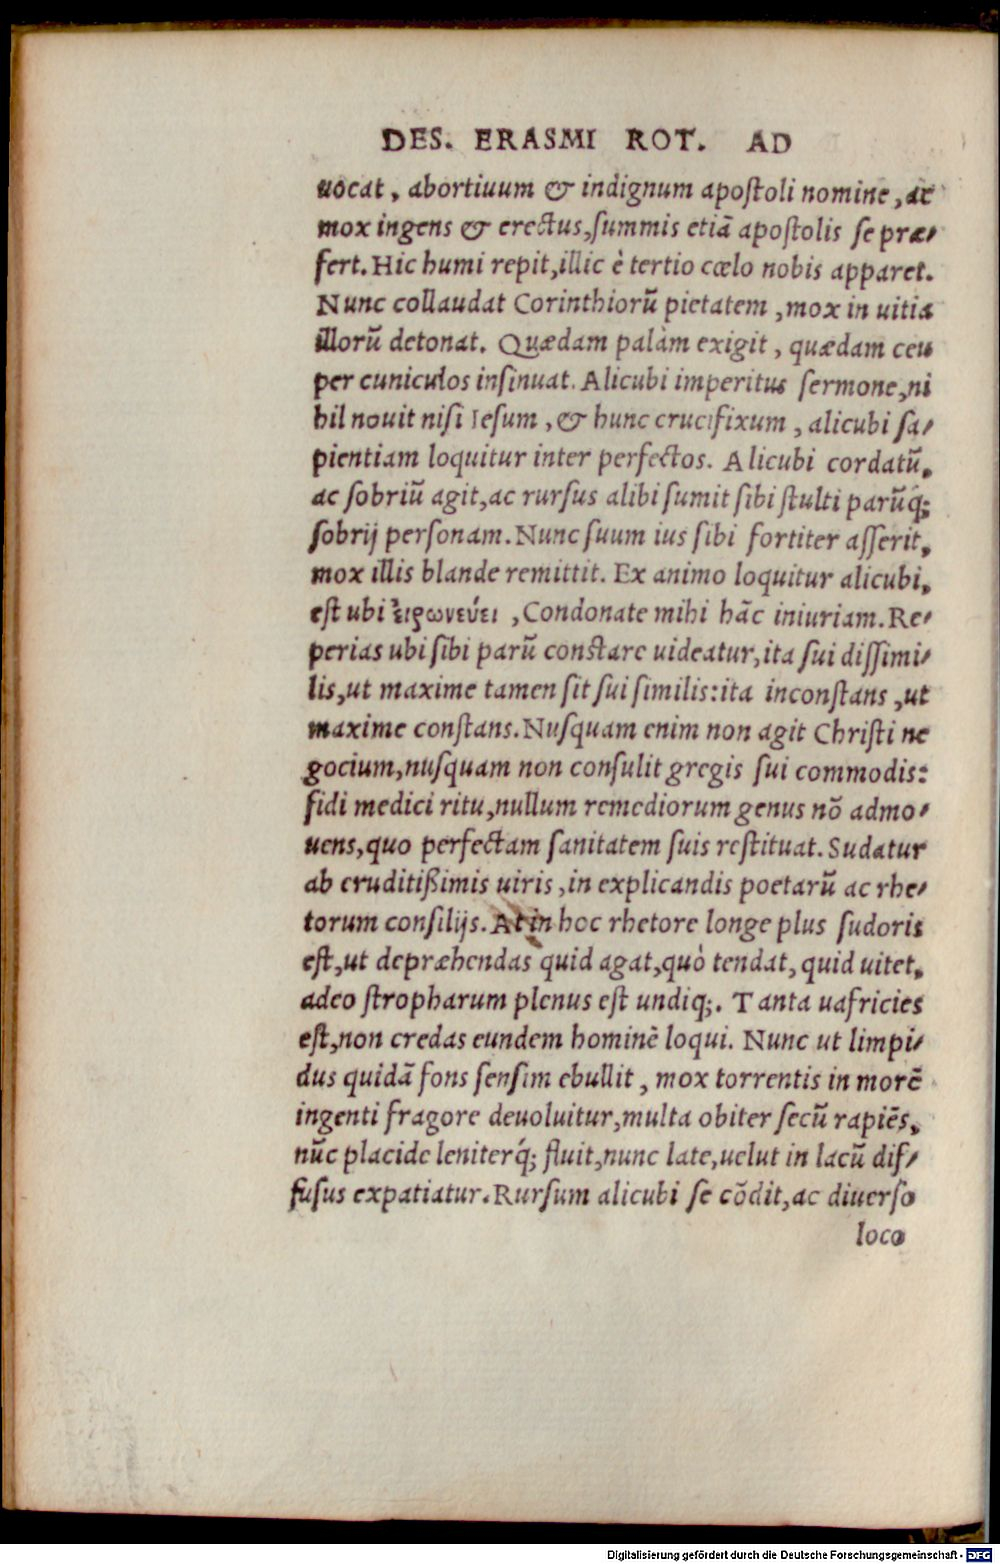 DES. ERASMI ROT. AD
uocat, abortiuum & indignum apoſtoli nomine, ac
mox ingens & erectus, ſummis etiã apoſtolis ſe præ-
fert. Hic humi repit, illic è tertio cœlo nobis apparet.
Nunc collaudat Corinthiorũ pietatem, mox in uitia
illorũ detonat. Quædam palàm exigit, quædam ceu
per cuniculos inſinuat. Alicubi imperitus ſermone, ni
hil nouit niſi Ieſum, & hunc crucifixum, alicubi ſa-
pientiam loquitur inter perfectos. Alicubi cordatũ,
ac ſobriũ agit, ac rurſus alibi ſumit ſibi ſtulti parũq́;
ſobrij perſonam. Nunc ſuum ius ſibi fortiter aſſerit,
mox illis blande remittit. Ex animo loquitur alicubi,
eſt ubi ἐιρωνεύει, Condonate mihi hãc iniuriam. Re-
perias ubi ſibi parũ conſtare uideatur, ita ſui diſſimi-
lis, ut maxime tamen ſit ſui ſimilis: ita inconſtans, ut
maxime conſtans. Nuſquam enim non agit Chriſti ne
gocium, nuſquam non conſulit gregis ſui commodis:
fidi medici ritu, nullum remediorum genus nõ admo-
uens, quo perfectam ſanitatem ſuis reſtituat. Sudatur
ab eruditißimis uiris, in explicandis poetarũ ac rhe-
torum conſilijs. At in hoc rhetore longe plus ſudoris
eſt, ut depræhendas quid agat, quò tendat, quid uitet,
adeo ſtropharum plenus eſt undiq;. Tanta uafricies
eſt, non credas eundem hominẽ loqui. Nunc ut limpi-
dus quidã fons ſenſim ebullit, mox torrentis in morẽ
ingenti fragore deuoluitur, multa obiter ſecũ rapiẽs,
nũc placide leniterq́; fluit, nunc late, uelut in lacũ dif-
fuſus expatiatur. Rurſum alicubi ſe cõdit, ac diuerſo
loco
Digitalisierung gefördert durch die Deutsche Forschungsgemeinschaft - DFG